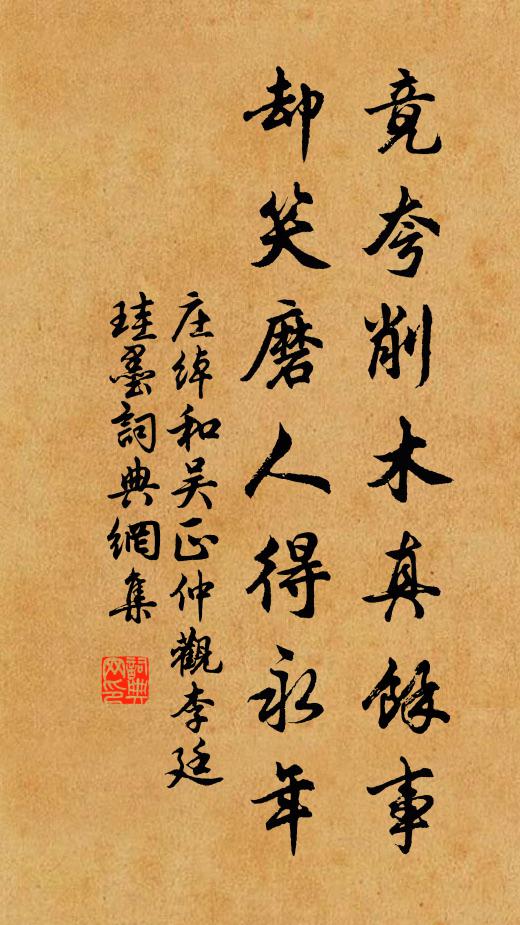 竟夸削木真餘事
却笑磨人得永年
庄綽和吴正仲觀李廷
珪墨詞典網集
詞典網印